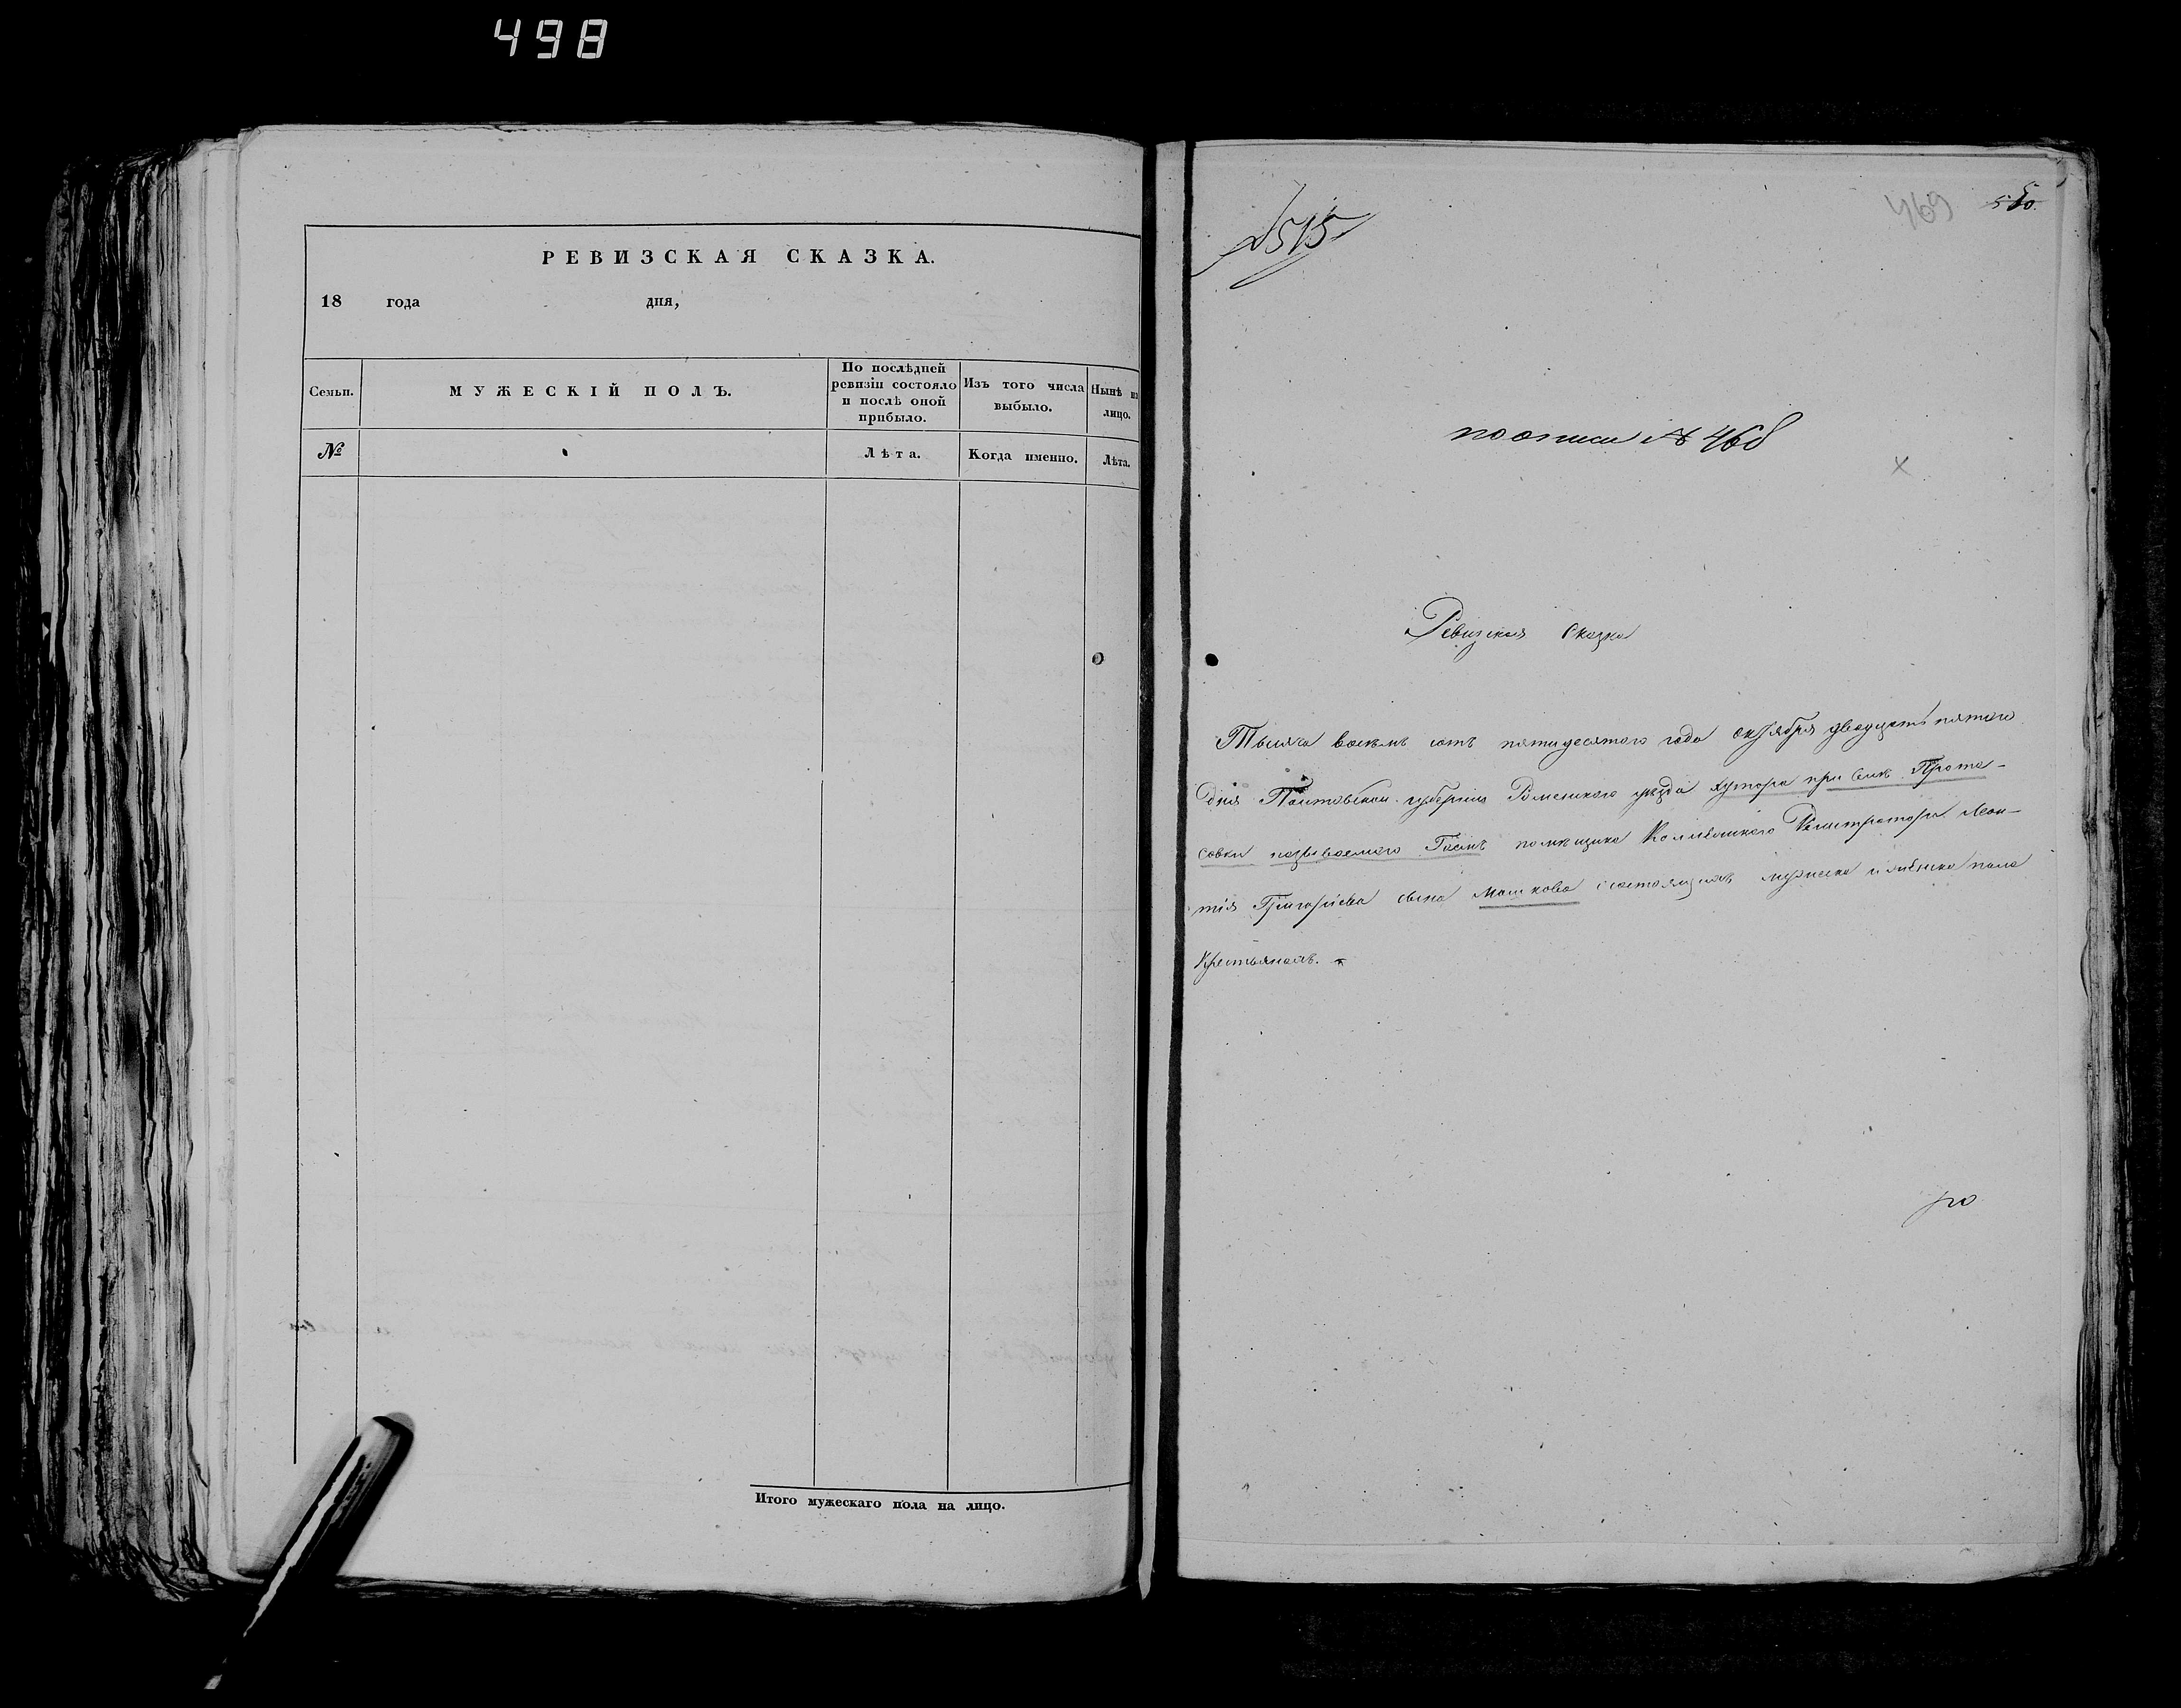 498
РЕВИЗСКАЯ СКАЗКА.
18 года дня,
Семьи.
МУЖЕСКІЙ ПОЛЪ.
По послѣдней ревизіи состояло и послѣ оной прибыло.
Изъ того числа выбыло.
Нынѣ на лицо.
№
Лѣта.
Когда именно.
Лѣта.
Итого мужескаго пола на лицо.
515
469
по описи № 468
Ревизская Сказка
Тысяча восемь сотъ пятидесятого года октября двадцать пятого
дня Полтавской губерніи Роменского уѣзда хутора при селѣ Прота-
совки называемого помѣщика Коллежского Регистратора Леон-
тія Григоріева сына Машкова состоящимъ мужеска и женска пола
Крестьянамъ.